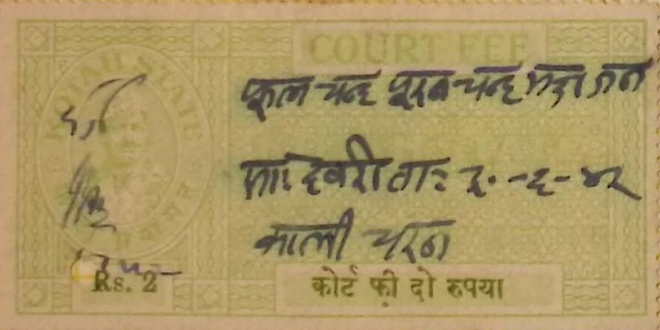 COURT FEE
KOTAH STATE
फूल चन्द पूरन चन्द महाजन
सा: देवरी ता: २०-६-४२
काली चरन
Rs. 2
कोर्ट फी दो रुपया